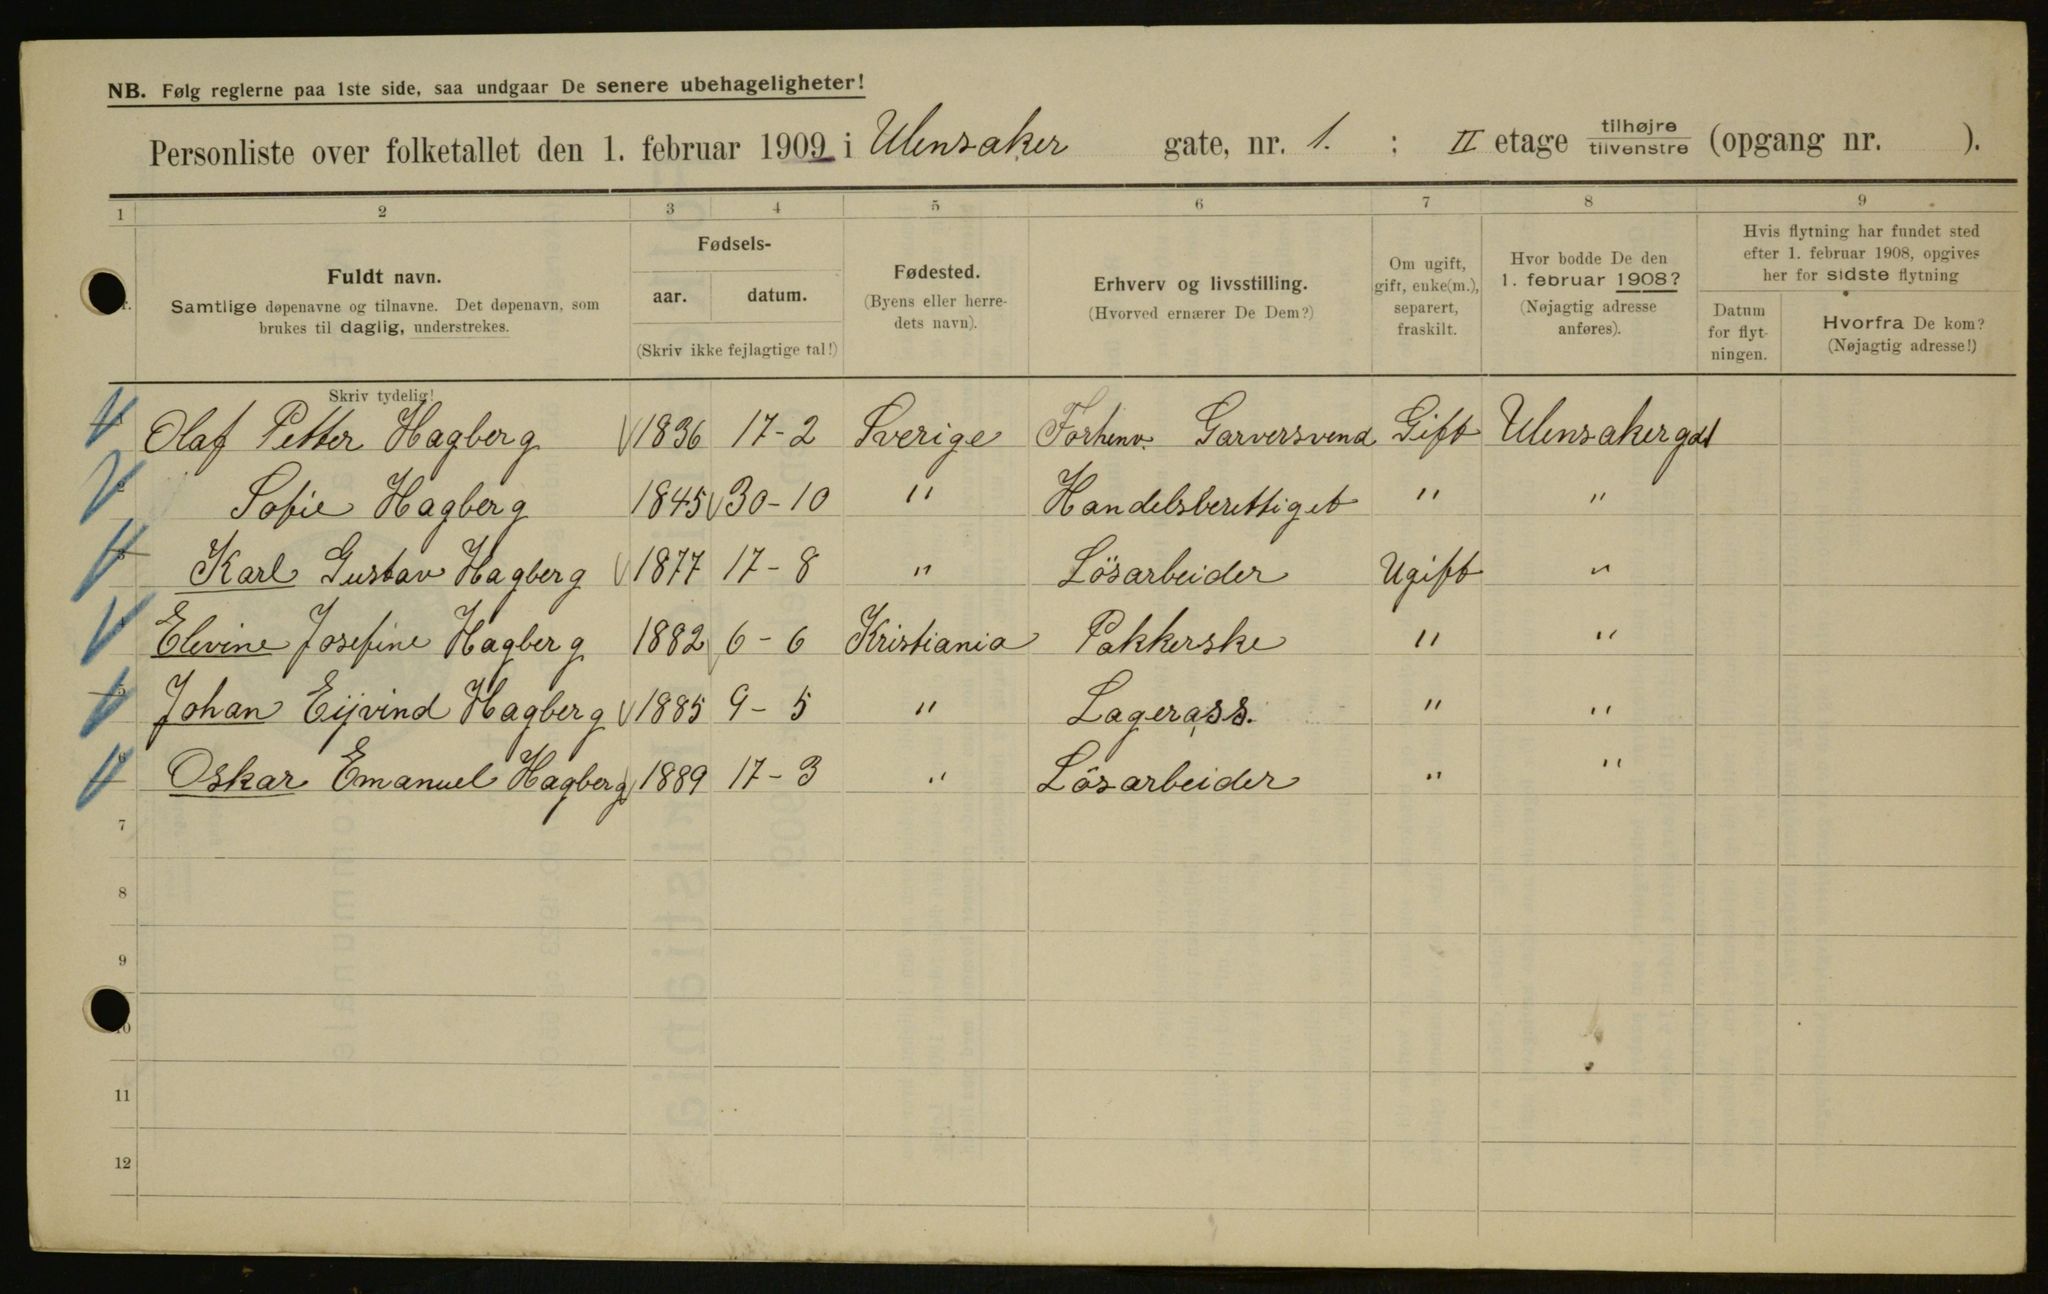 NB. Følg reglerne paa 1ste side, saa undgaar De senere ubehageligheter!
Personliste over folketallet den 1. februar 1909 i Ulensaker gate, nr. 1. : II etage tilhøjre tilvenstre (opgang nr. ).
1 2 3 4 5 6 7 8 9
Fuldt navn.
Samtlige døpenavne og tilnavne. Det døpenavn, som
brukes til daglig, understrekes.
Fødsels-
aar. datum.
(Skriv ikke fejlagtige tal!)
Fødested.
(Byens eller herre-
dets navn).
Erhverv og livsstilling.
(Hvorved ernærer De Dem?)
Om ugift,
gift, enke(m.),
separert,
fraskilt.
Hvor bodde De den
1. februar 1908?
(Nøjagtig adresse
anføres).
Hvis flytning har fundet sted
efter 1. februar 1908, opgives
her for sidste flytning
Datum
for flyt-
ningen.
Hvorfra De kom?
(Nøjagtig adresse!)
Skriv tydelig!
Olaf Petter Hagberg 1836 17-2 Sverige Forhenv. Garversvend Gift Ulensakergdt
Sofie Hagberg 1845 30-10 " Handelsberettiget " "
Karl Gustav Hagberg 1877 17-8 " Lösarbeider Ugift "
Elevine Josefine Hagberg 1882 6-6 Kristiania Pakkerske " "
Johan Eijvind Hagberg 1885 9-5 " Lagerass. " "
Oskar Emanuel Hagberg 1889 17-3 " Lösarbeider " "
7
8
9
10
11
12